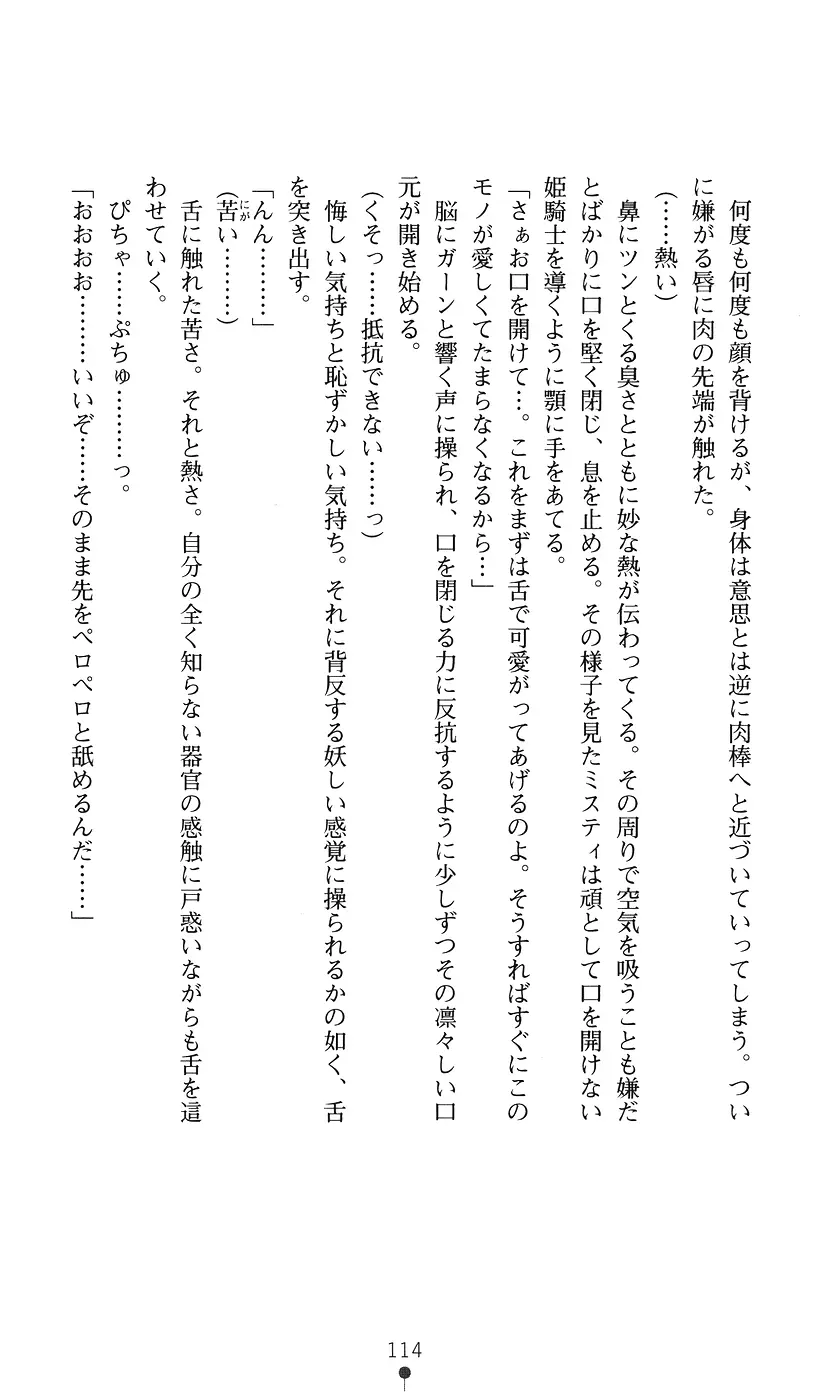 何度も何度も顔を背けるが、身体は意思とは逆に肉棒へと近づいていってしまう。つい
に嫌がる唇に肉の先端が触れた。
(……熱い)
鼻にツンとくる臭さとともに妙な熱が伝わってくる。その周りで空気を吸うことも嫌だ
とばかりに口を堅く閉じ、息を止める。その様子を見たミスティは頑として口を開けない
姫騎士を導くように顎に手をあてる。
「さぁお口を開けて…。これをまずは舌で可愛がってあげるのよ。そうすればすぐにこの
モノが愛しくてたまらなくなるから…」
脳にガーンと響く声に操られ、口を閉じる力に反抗するように少しずつその凛々しい口
元が開き始める。
(くそっ……抵抗できない……っ)
悔しい気持ちと恥ずかしい気持ち。それに背反する妖しい感覚に操られるかの如く、舌
を突き出す。
「んん………」
(苦い………)
にが
舌に触れた苦さ。それと熱さ。自分の全く知らない器官の感触に戸惑いながらも舌を這
わせていく。
ぴちゃ……ぷちゅ………っ。
「おおおお………いいぞ……そのまま先をペロペロと舐めるんだ……」
114